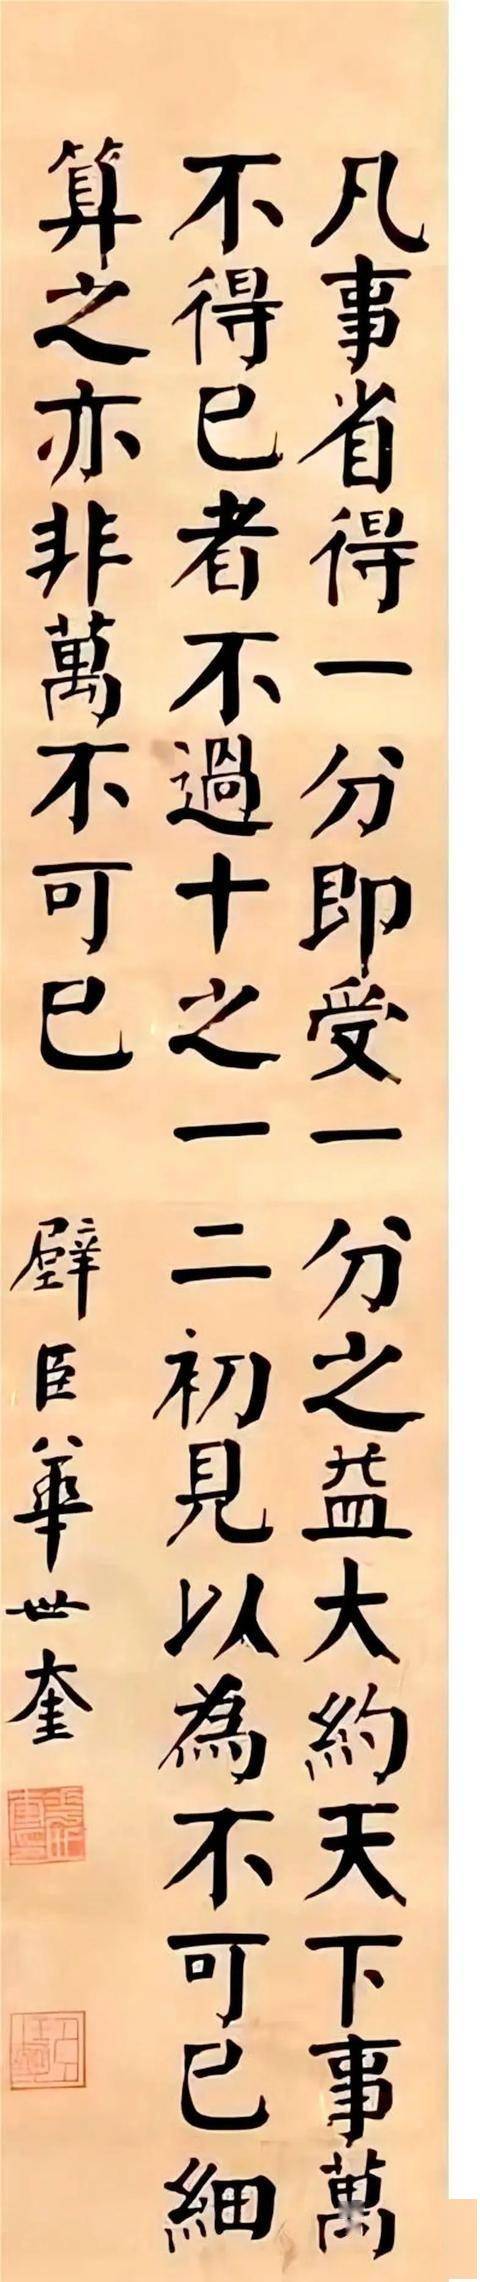 凡事省得一分即受一分之益大約天下事萬
不得已者不過十之一二初見以為不可已細
算之亦非萬不可已
壁臣華世奎